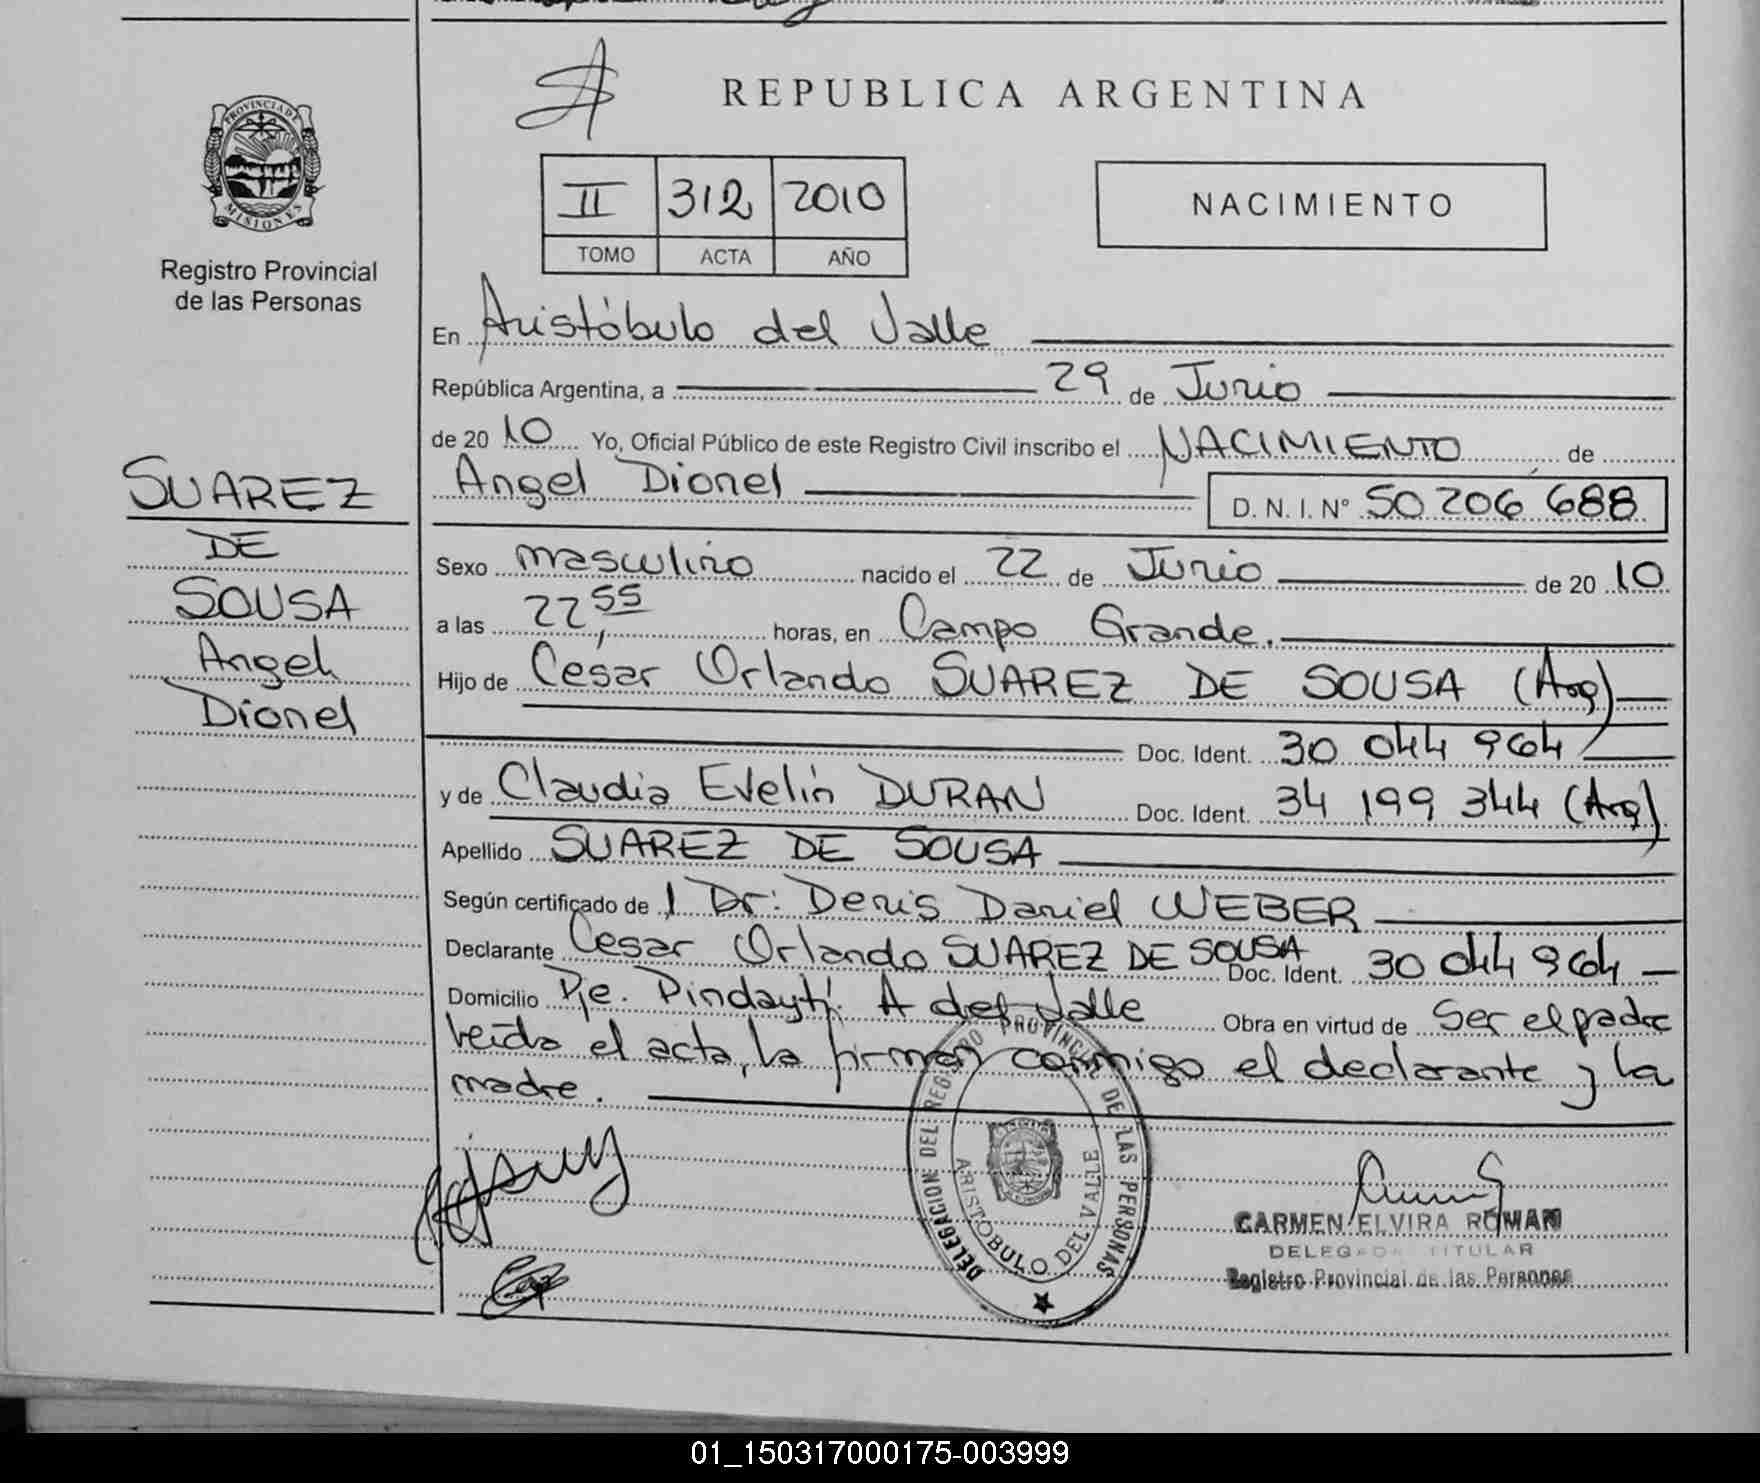 REPUBLICA ARGENTINA
PROVINCIA DE
MISIONES
Registro Provincial
de las Personas
II 312 2010
TOMO ACTA AÑO
NACIMIENTO
En Aristóbulo del Valle
República Argentina, a 29 de Junio
de 2010 Yo, Oficial Público de este Registro Civil inscribo el NACIMIENTO de
Angel Dionel D. N. I. Nº 50 206 688
SUAREZ
DE
SOUSA
Angel
Dionel
Sexo masculino nacido el 22 de Junio de 2010
a las 22,55 horas, en Campo Grande.
Hijo de César Orlando SUAREZ DE SOUSA (Arg)
Doc. Ident. 30 044 964
y de Claudia Evelin DURAN Doc. Ident. 34 199 344 (Arg)
Apellido SUAREZ DE SOUSA
Según certificado de Dr: Denis Daniel WEBER
Declarante César Orlando SUAREZ DE SOUSA Doc. Ident. 30 044 964
Domicilio Pje. Pindaytí. A del Valle Obra en virtud de Ser el padre
leída el acta, la firman conmigo el declarante y la
madre.
DELEGACION DEL REGISTRO PROVINCIAL DE LAS PERSONAS
ARISTOBULO DEL VALLE
CARMEN ELVIRA ROMAN
DELEGADA TITULAR
Registro Provincial de las Personas
01_150317000175-003999